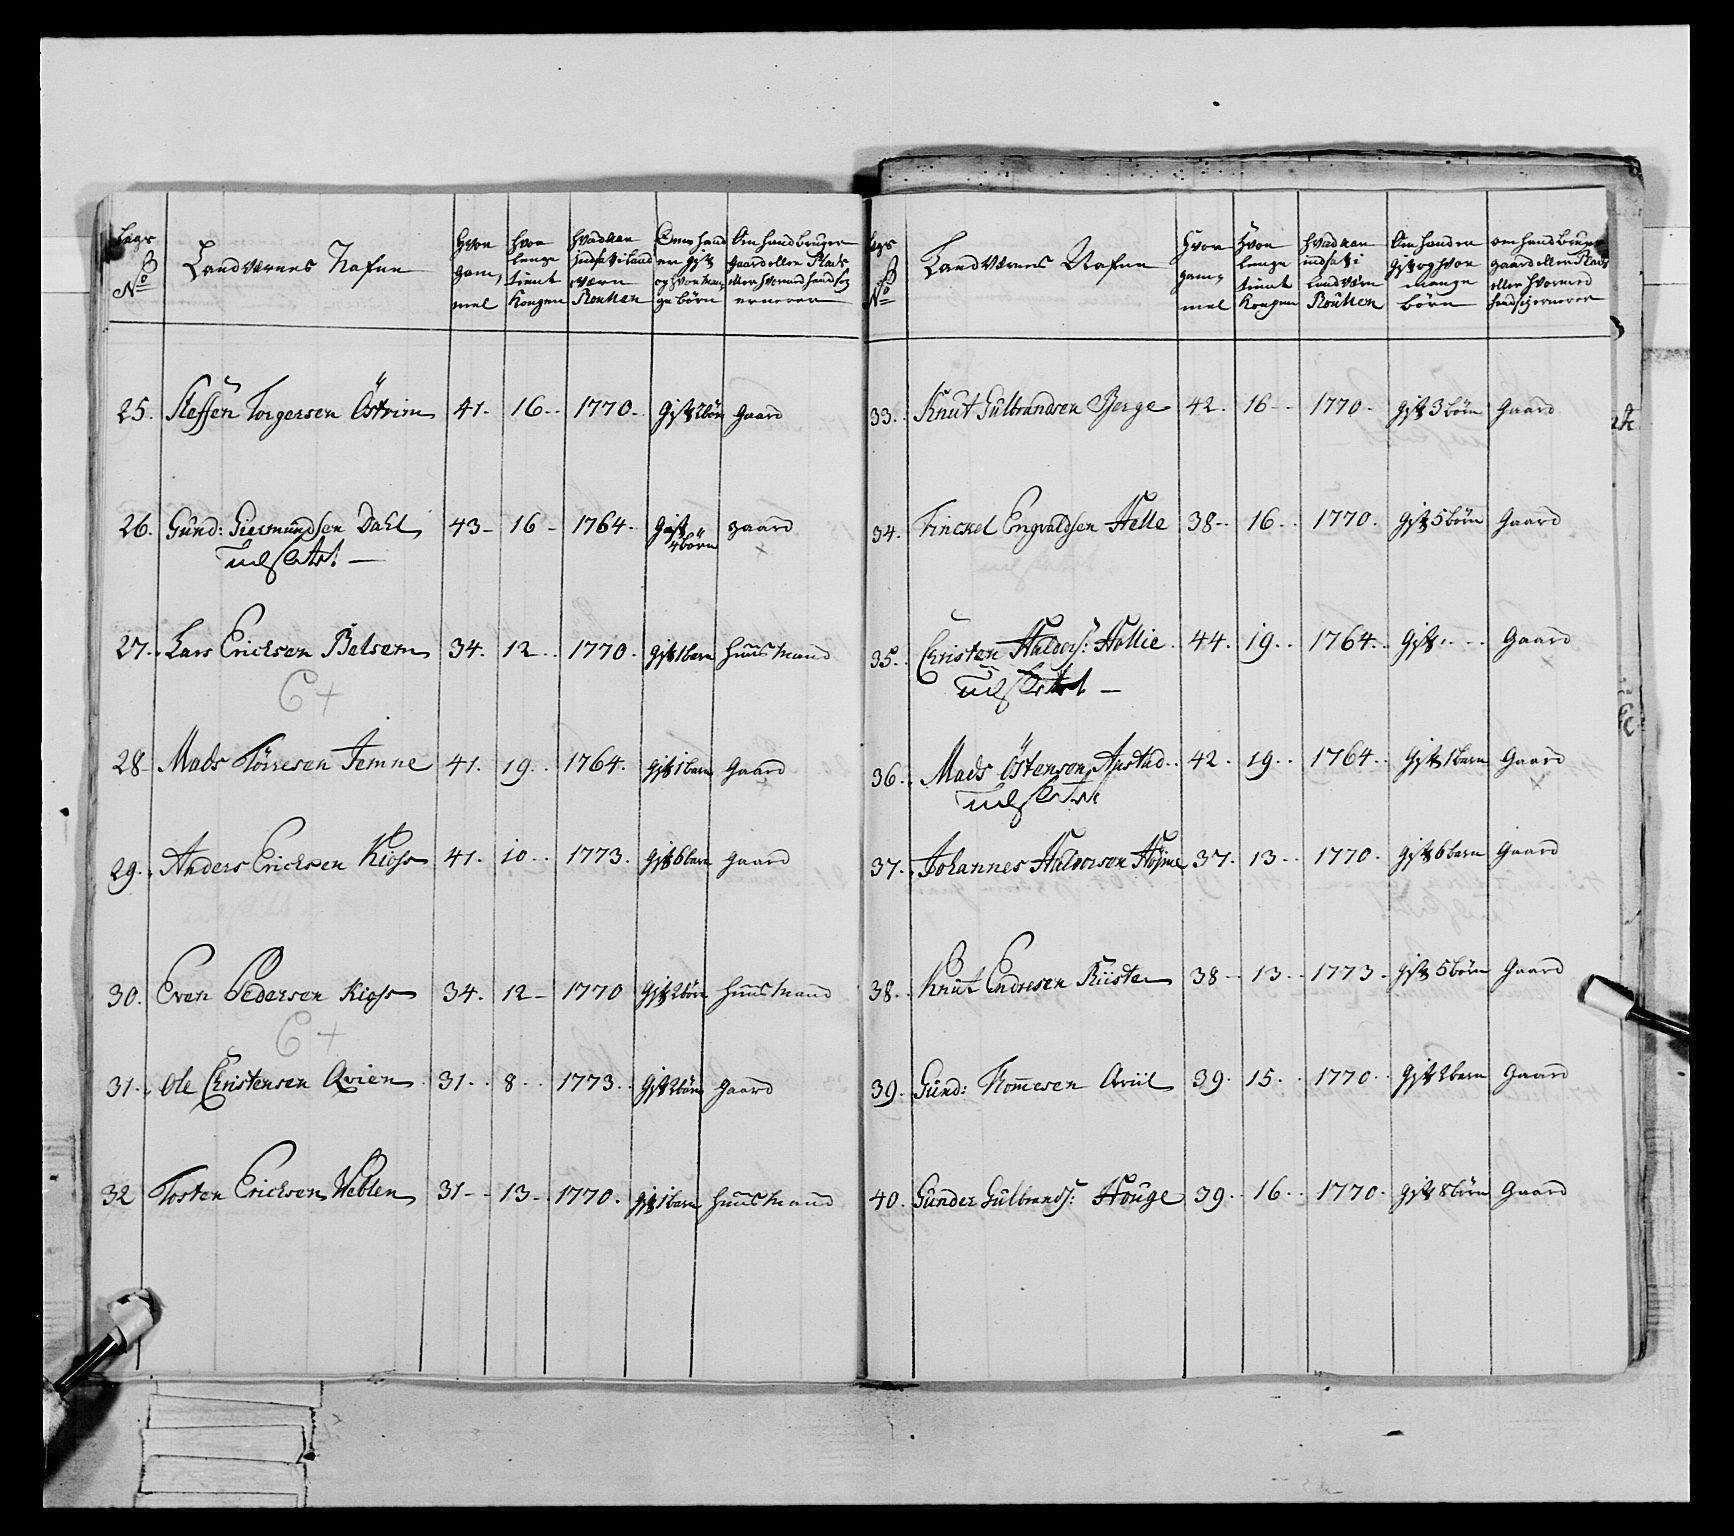 Legs No
Landværnes Nafne
Hvor gam, mel
hvor lenge tient Kongen
hvad aar indsat i land værn Roullen
Om hand er gift og hvor man, ge börn
Om hand bruger gaard eller Plads eller hvormed hand sig ernerer
25. Steffen Torgersen Östrim 41. 16.. 1770.. gift 2 börn gaard
26. Gund: Giermundsen Dahl 43 - 16 - 1764. gift 4 börn gaard
x
udslettet. —
27. Lars Ericksen Belsem 34. 12.. 1770. gift 1 barn huusmand
C +
28 Mads Törresen Jemne 41. 19.. 1764. gift 1 barn gaard
x
29. Anders Ericksen Kioss 41. 10.. 1773. gift 6 barn gaard
30. Even Pedersen Kioss 34. 12 - 1770 gift 2 börn huusmand
C +
31.. Ole Christensen Qvien 31.. 8.. 1773.. gift 2 börn gaard
32 Tosten Ericksen Weblen 31 - 13 - 1770. gift 1 barn huusmand
Legs No
Landværnes Nafne
Hvor gam, mel
Hvor lenge tient Kongen
hvad aar indsat i Landværn Roullen
Om hand er gift og hvor mange börn
om hand bruger gaard eller Plads eller hvormed hand sig ernerer
33. Knut Gulbrandsen Berge 42. 16 - 1770. gift 3 börn gaard
34. Trinckel Engvaldsen Helle 38 - 16.. 1770. gift 5 börn gaard
35. Christen Haldors: Hollie 44. 19.. 1764. gift.. Gaard
x
udslettet —
36. Mads Östensen Apstad 42. 19.. 1764. gift 1 barn gaard
x
udslettet
37. Johannes Haldorsen Höjme 37. 13.. 1770. gift 6 barn gaard
38. Knut Endresen Riiste 38 - 13.. 1773 - gift 5 börn gaard
39. Gund: Tommesen Qviil 39. 15. 1770. gift 2 barn Gaard
40. Gunder Gulbrands: Houge 39. 16.. 1770. gift 8 börn gaard